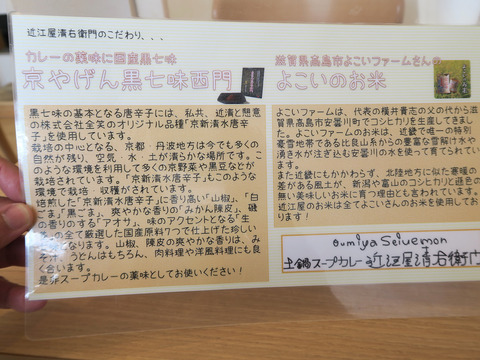 近江屋清右衛門のこだわり、、、
カレーの薬味に国産黒七味
京やげん黒七味西門
黒七味の基本となる唐辛子には、私共、近清と懇意
の株式会社全笑のオリジナル品種「京新清水唐辛
子」を使用しています。
栽培の中心となる、京都・丹波地方は今でも多くの
自然が残り、空気・水・土が清らかな場所です。こ
のような環境を利用して多くの京野菜や黒豆などが
栽培されています。「京新清水唐辛子」もこのような
環境で栽培・収穫がされています。
焙煎した「京新清水唐辛子」に香り高い「山椒」、「白
ごま」「黒ごま」、爽やかな香りの「みかん陳皮」、磯
の香りのする「アオサ」、味のアクセントとなる「生
の全て厳選した国産原料7つで仕上げた珍しい
なります。山椒、陳皮の爽やかな香りは、み
、うどんはもちろん、肉料理や洋風料理にも良
く合います。
是非スープカレーの薬味としてお使いください!
滋賀県高島市よこいファームさんの
よこいのお米
よこいファームは、代表の横井貴志の父の代から滋
賀県高島市安曇川町でコシヒカリを生産してきまし
た。よこいファームのお米は、近畿で唯一の特別
豪雪地帯である比良山系からの豊富な雪解け水や
湧き水が注ぎ込む安曇川の水を使って育てられてい
ます。
また近畿にもかかわらず、北陸地方に似た寒暖
の差がある風土が、新潟や富山のコシヒカリと遜色の
無い美味しいお米に育つ理由とも言われています。
近江屋のお米は全てよこいさんのお米を使用してお
ります!
Oumiya Seiuemon
土鍋スープカレー 近江屋清右衛門